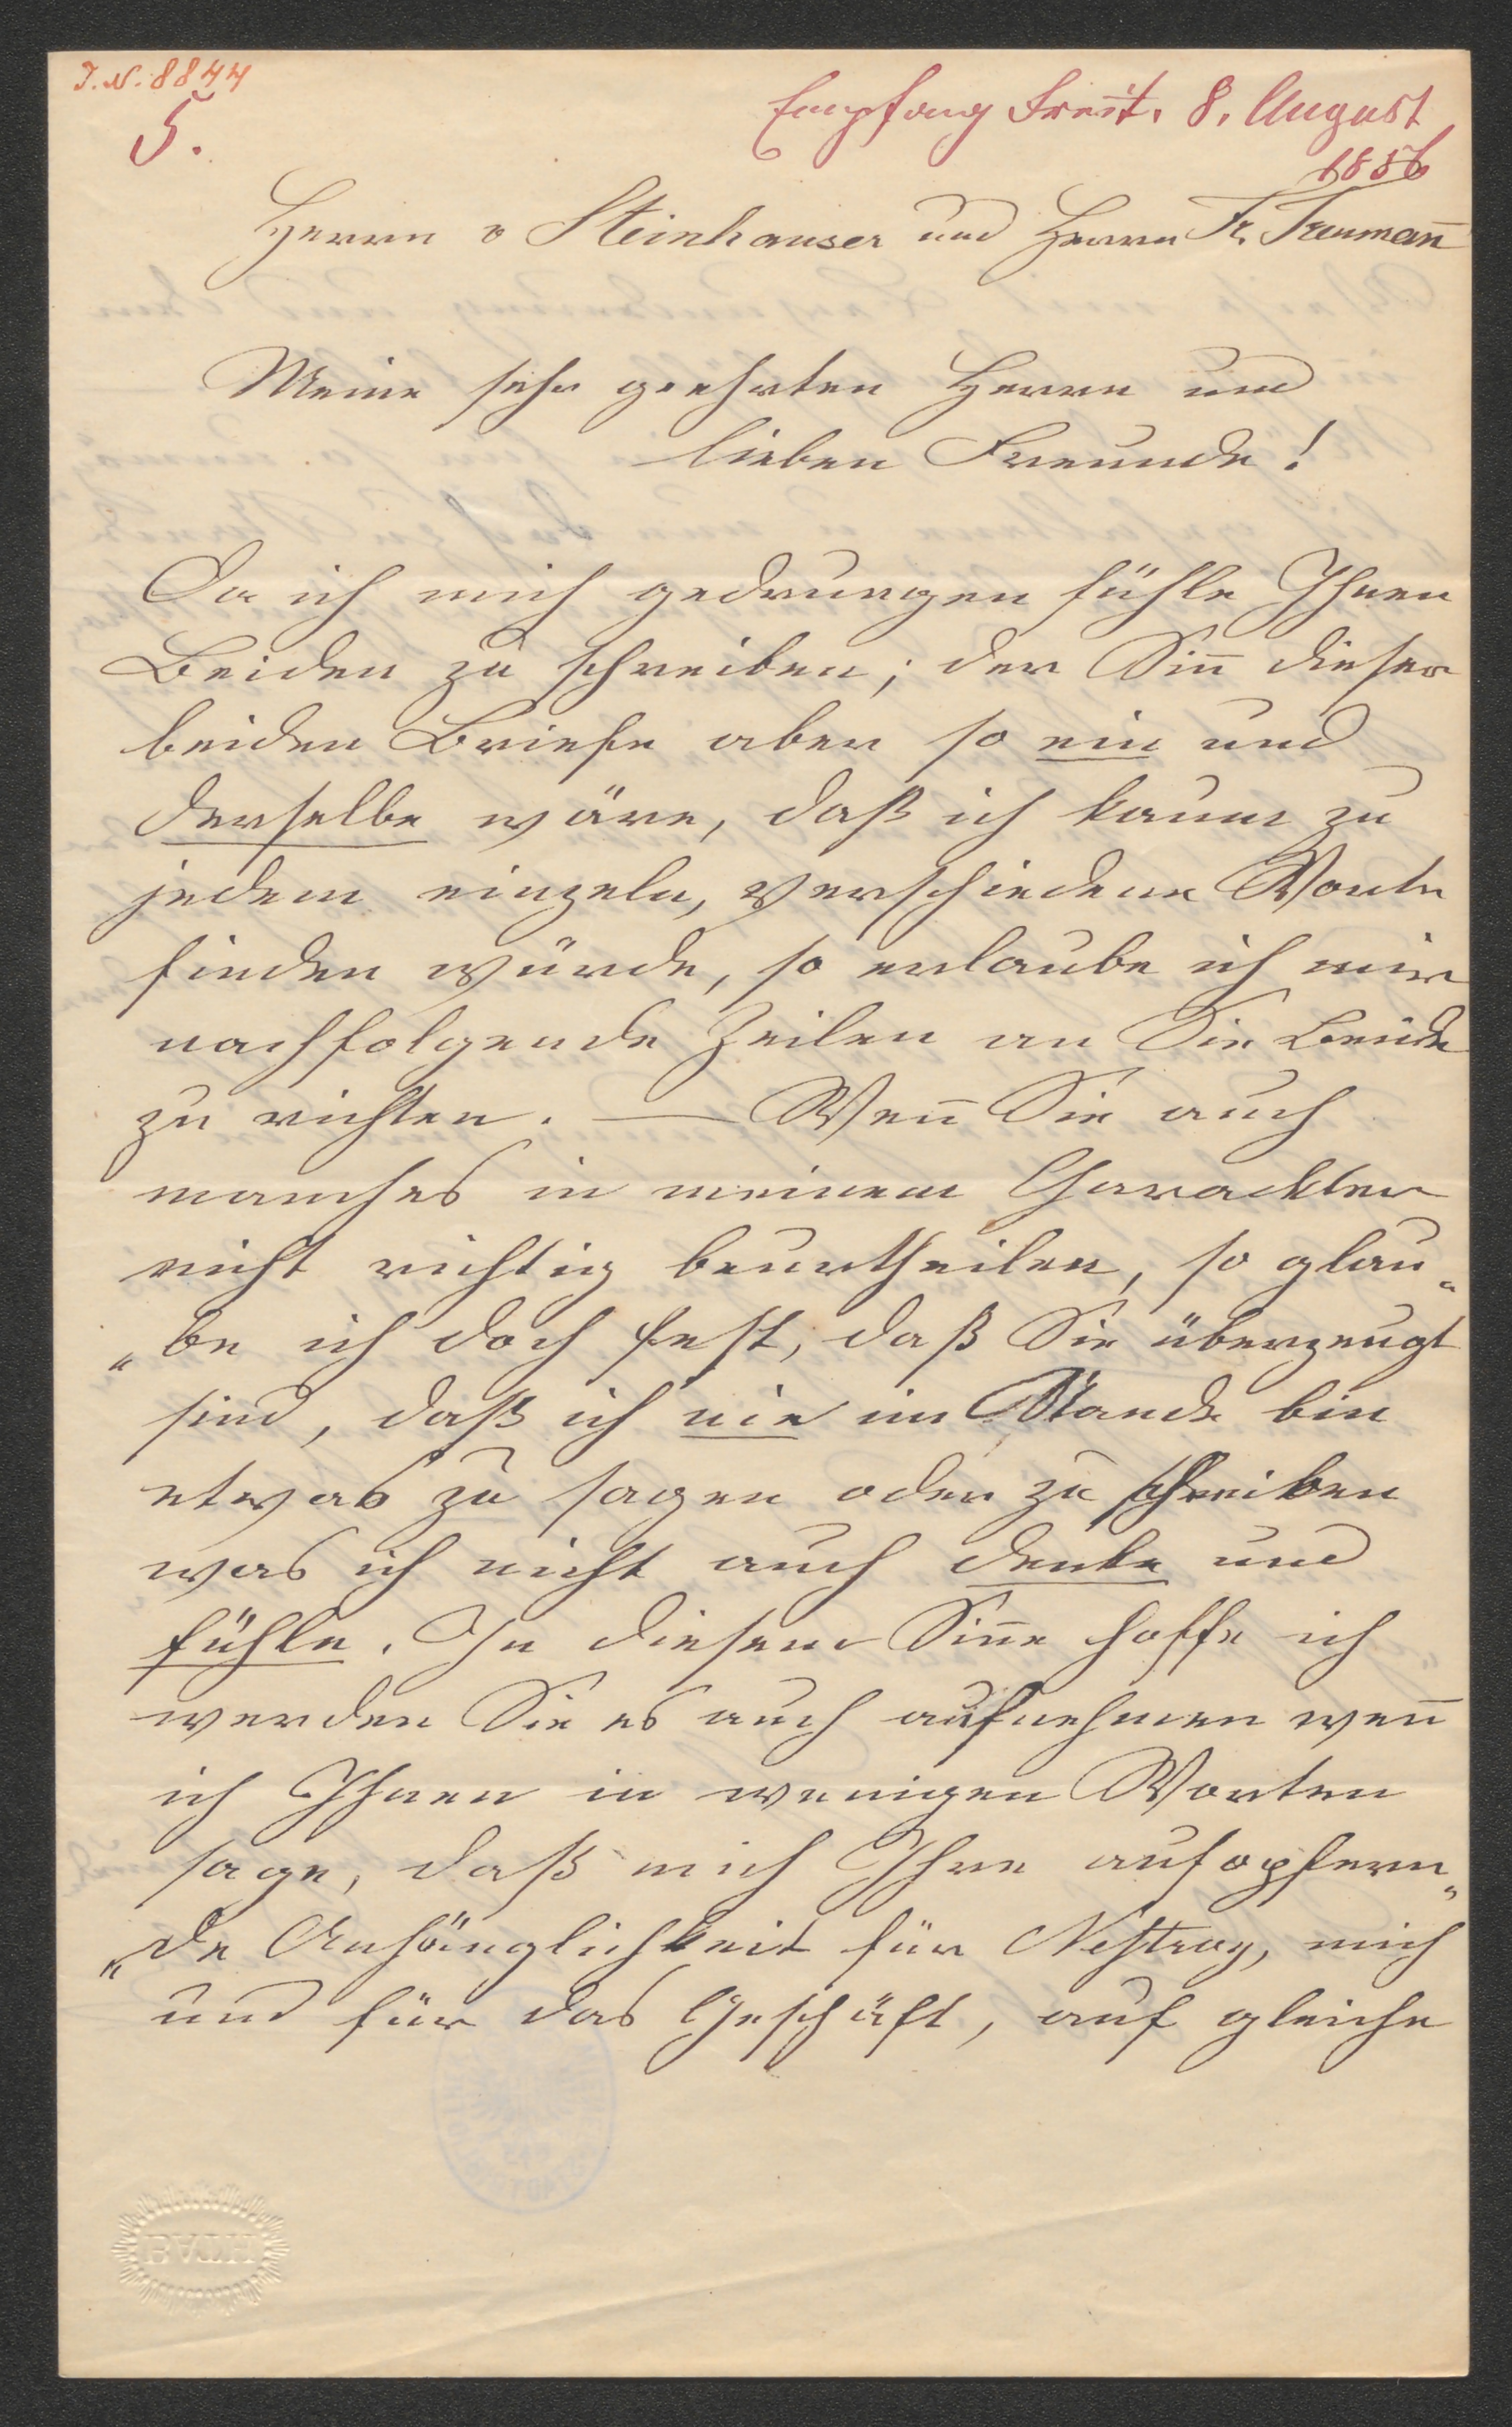 J. N. 8844
5.
Empfang Freit. 8. August
1856
Herrn v Steinhauser und Herrn Fr. Treuman̅
Meine sehr geehrten Herrn und
lieben Freunde!
Da ich mich gedrungen fühle Ihnen
Beiden zu schreiben; der Sin̅ dieser
beiden Briefe aber so ein und
derselbe wäre, daß ich kaum zu
jedem einzeln, verschiedene Worte
finden würde, so erlaube ich mir
nachfolgende Zeilen an Sie Beide
zu richten. — Wen̅ Sie auch
manches in meinem Charackter
nicht richtig beurtheilen, so glau„
„be ich doch fest, daß Sie überzeugt
sind, daß ich nie im Stande bin
etwas zu sagen oder zu schreiben
was ich nicht auch denke und
fühle. In diesem Sin̅e hoffe ich
werden Sie es auch aufnehmen wen̅
ich Ihnen in wenigen Worten
sage, daß mich Ihre aufopfern„
„de Anhänglichkeit für Nestroy, mich
und für das Geschäft, auf gleiche
BATH